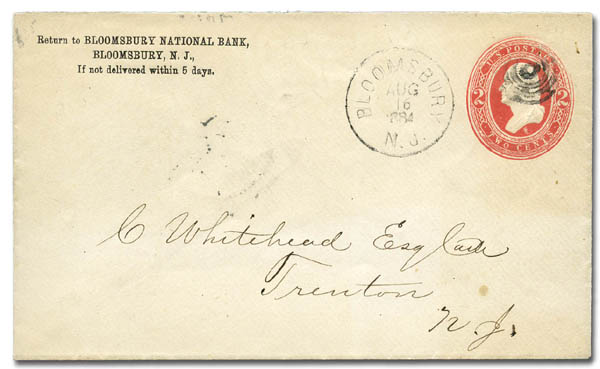 Return to BLOOMSBURY NATIONAL BANK,
BLOOMSBURY, N. J.,
If not delivered within 5 days.
BLOOMSBURY
AUG
16
1884
N. J.
U.S. POSTAGE
2 2
TWO CENTS
C Whitehead Esq Cash
Trenton
N. J.